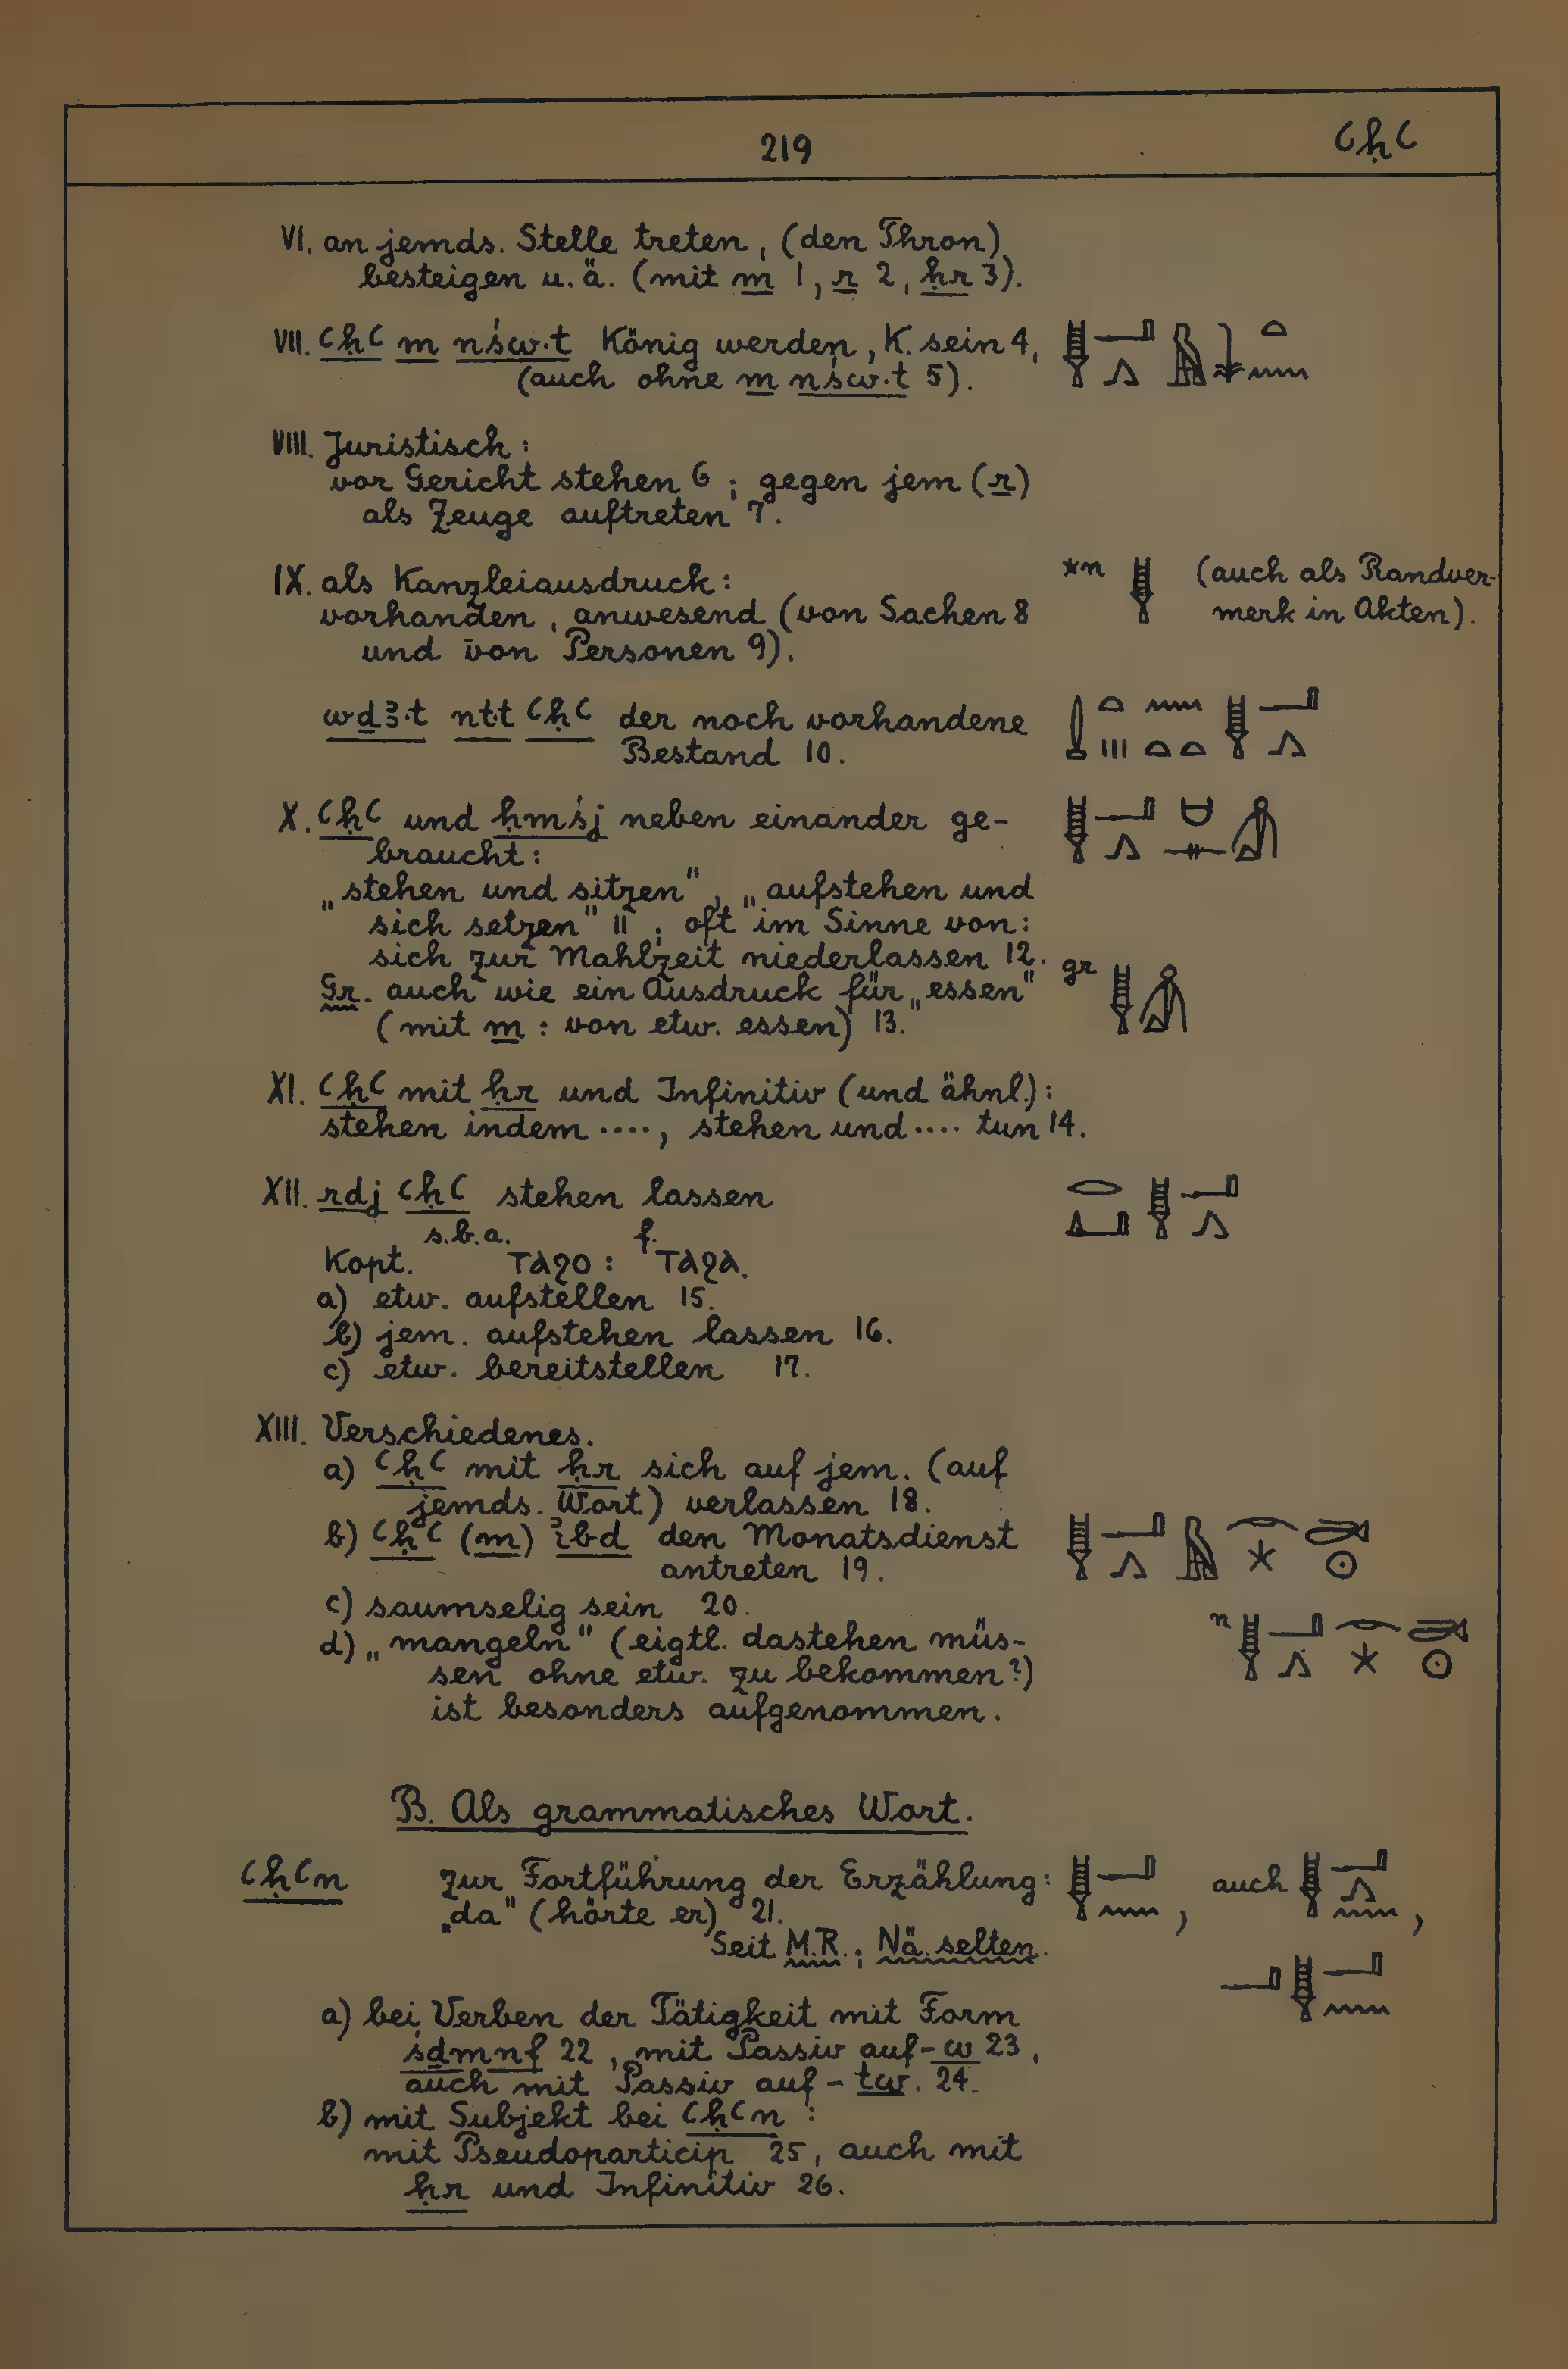 219
ꜥḥꜥ
VI. an jemds. Stelle treten, (den Thron)
besteigen u. ä. (mit m 1, r 2, ḥr 3).
VII. ꜥḥꜥ m nśw.t König werden, K. sein 4,
(auch ohne m nśw.t 5).
VIII. Juristisch:
vor Gericht stehen 6; gegen jem (r)
als Zeuge auftreten 7.
IX. als Kanzleiausdruck:
vorhanden, anwesend (von Sachen 8
und von Personen 9).
*n (auch als Randver-
merk in Akten).
wḏꜣ.t ntt ꜥḥꜥ der noch vorhandene
Bestand 10.
X. ꜥḥꜥ und ḥmśj neben einander ge-
braucht:
„stehen und sitzen", „aufstehen und
sich setzen" 11; oft im Sinne von:
sich zur Mahlzeit niederlassen 12.
Gr. auch wie ein Ausdruck für „essen"
(mit m: von etw. essen) 13.
gr
XI. ꜥḥꜥ mit ḥr und Infinitiv (und ähnl.):
stehen indem ...., stehen und .... tun 14.
XII. rdj ꜥḥꜥ stehen lassen
s.b.a. f.
Kopt. ⲧⲁϩⲟ: ⲧⲁϩⲁ.
a) etw. aufstellen 15.
b) jem. aufstehen lassen 16.
c) etw. bereitstellen 17.
XIII. Verschiedenes.
a) ꜥḥꜥ mit ḥr sich auf jem. (auf
jemds. Wort) verlassen 18.
b) ꜥḥꜥ (m) ꜣbd den Monatsdienst
antreten 19.
c) saumselig sein 20.
d) „mangeln" (eigtl. dastehen müs-
sen ohne etw. zu bekommen?)
ist besonders aufgenommen.
n
B. Als grammatisches Wort.
ꜥḥꜥn zur Fortführung der Erzählung:
„da" (hörte er) 21.
Seit M.R.; Nä. selten.
, auch ,
a) bei Verben der Tätigkeit mit Form
sḏmnf 22, mit Passiv auf -w 23,
auch mit Passiv auf -tw. 24.
b) mit Subjekt bei ꜥḥꜥn:
mit Pseudoparticip 25, auch mit
ḥr und Infinitiv 26.